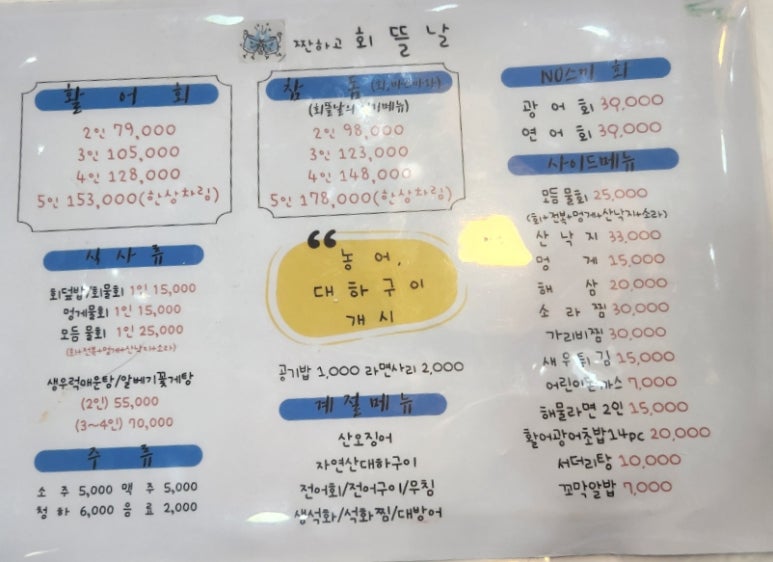 짠하고 회 뜰 날
활 어 회
2인 79,000
3인 105,000
4인 128,000
5인 153,000(한상차림)
식 사 류
회덮밥/회물회 1인 15,000
멍게물회 1인 15,000
모듬 물회 1인 25,000
(회+전복+멍게+산낙지+소라)
생우럭매운탕/알베기꽃게탕
(2인) 55,000
(3~4인) 70,000
주 류
소 주 5,000 맥 주 5,000
청 하 6,000 음 료 2,000
참 돔
(회뜰날의 메뉴)
2인 98,000
3인 123,000
4인 148,000
5인 178,000(한상차림)
농 어,
대 하 구 이
개 시
공기밥 1,000 라면사리 2,000
계 절 메 뉴
산오징어
자연산대하구이
전어회/전어구이/무침
생석화/석화찜/대방어
NO스끼 회
광 어 회 39,000
연 어 회 39,000
사이드메뉴
모듬 물회 25,000
(회+전복+멍게+산낙지+소라)
산 낙 지 33,000
멍 게 15,000
해 삼 20,000
소 라 찜 30,000
가리비찜 30,000
새 우 튀 김 15,000
어린이돈까스 7,000
해물라면 2인 15,000
활어광어초밥14pc 20,000
서더리탕 10,000
꼬막알밥 7,000